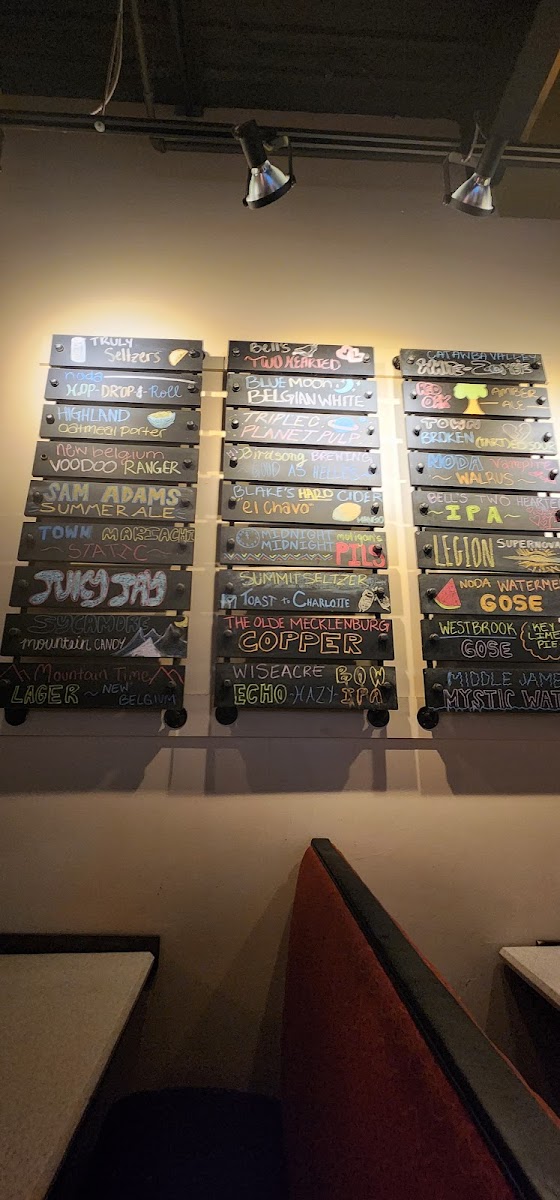 TRULY
Seltzers
noda
HOP-DROP-&-Roll
HIGHLAND
oatmeal porter
new belgium
VOODOO RANGER
SAM ADAMS
SUMMER ALE
TOWN MARIACHI
~ STATIC
JUICY JAY
SYCAMORE
mountain CANDY
Mountain Time
LAGER ~ NEW BELGIUM
Bell's
TWO HEARTED
BLUE MOON
BELGIAN WHITE
TRIPLE C.
PLANET PULP
Birdsong BREWING
BLAKE'S HARD CIDER
el chavo
MANGO
MIDNIGHT
MIDNIGHT
muligan's
PILS
SUMMIT SELTZER
TOAST to CHARLOTTE
THE OLDE MECKLENBURG
COPPER
WISEACRE BOW
ECHO-HAZY-IPA
CATAWBA VALLEY
WHITE-ZOMBIE
RED OAK
AMBER ALE
TOWN
BROKEN
NODA Vampire
~ WALRUS ~
BELL'S TWO HEARTED
~ IPA ~
LEGION SUPERNOV
NODA WATERME
GOSE
WESTBROOK
GOSE
KEY LIME PIE
MIDDLE JAME
MYSTIC WAT